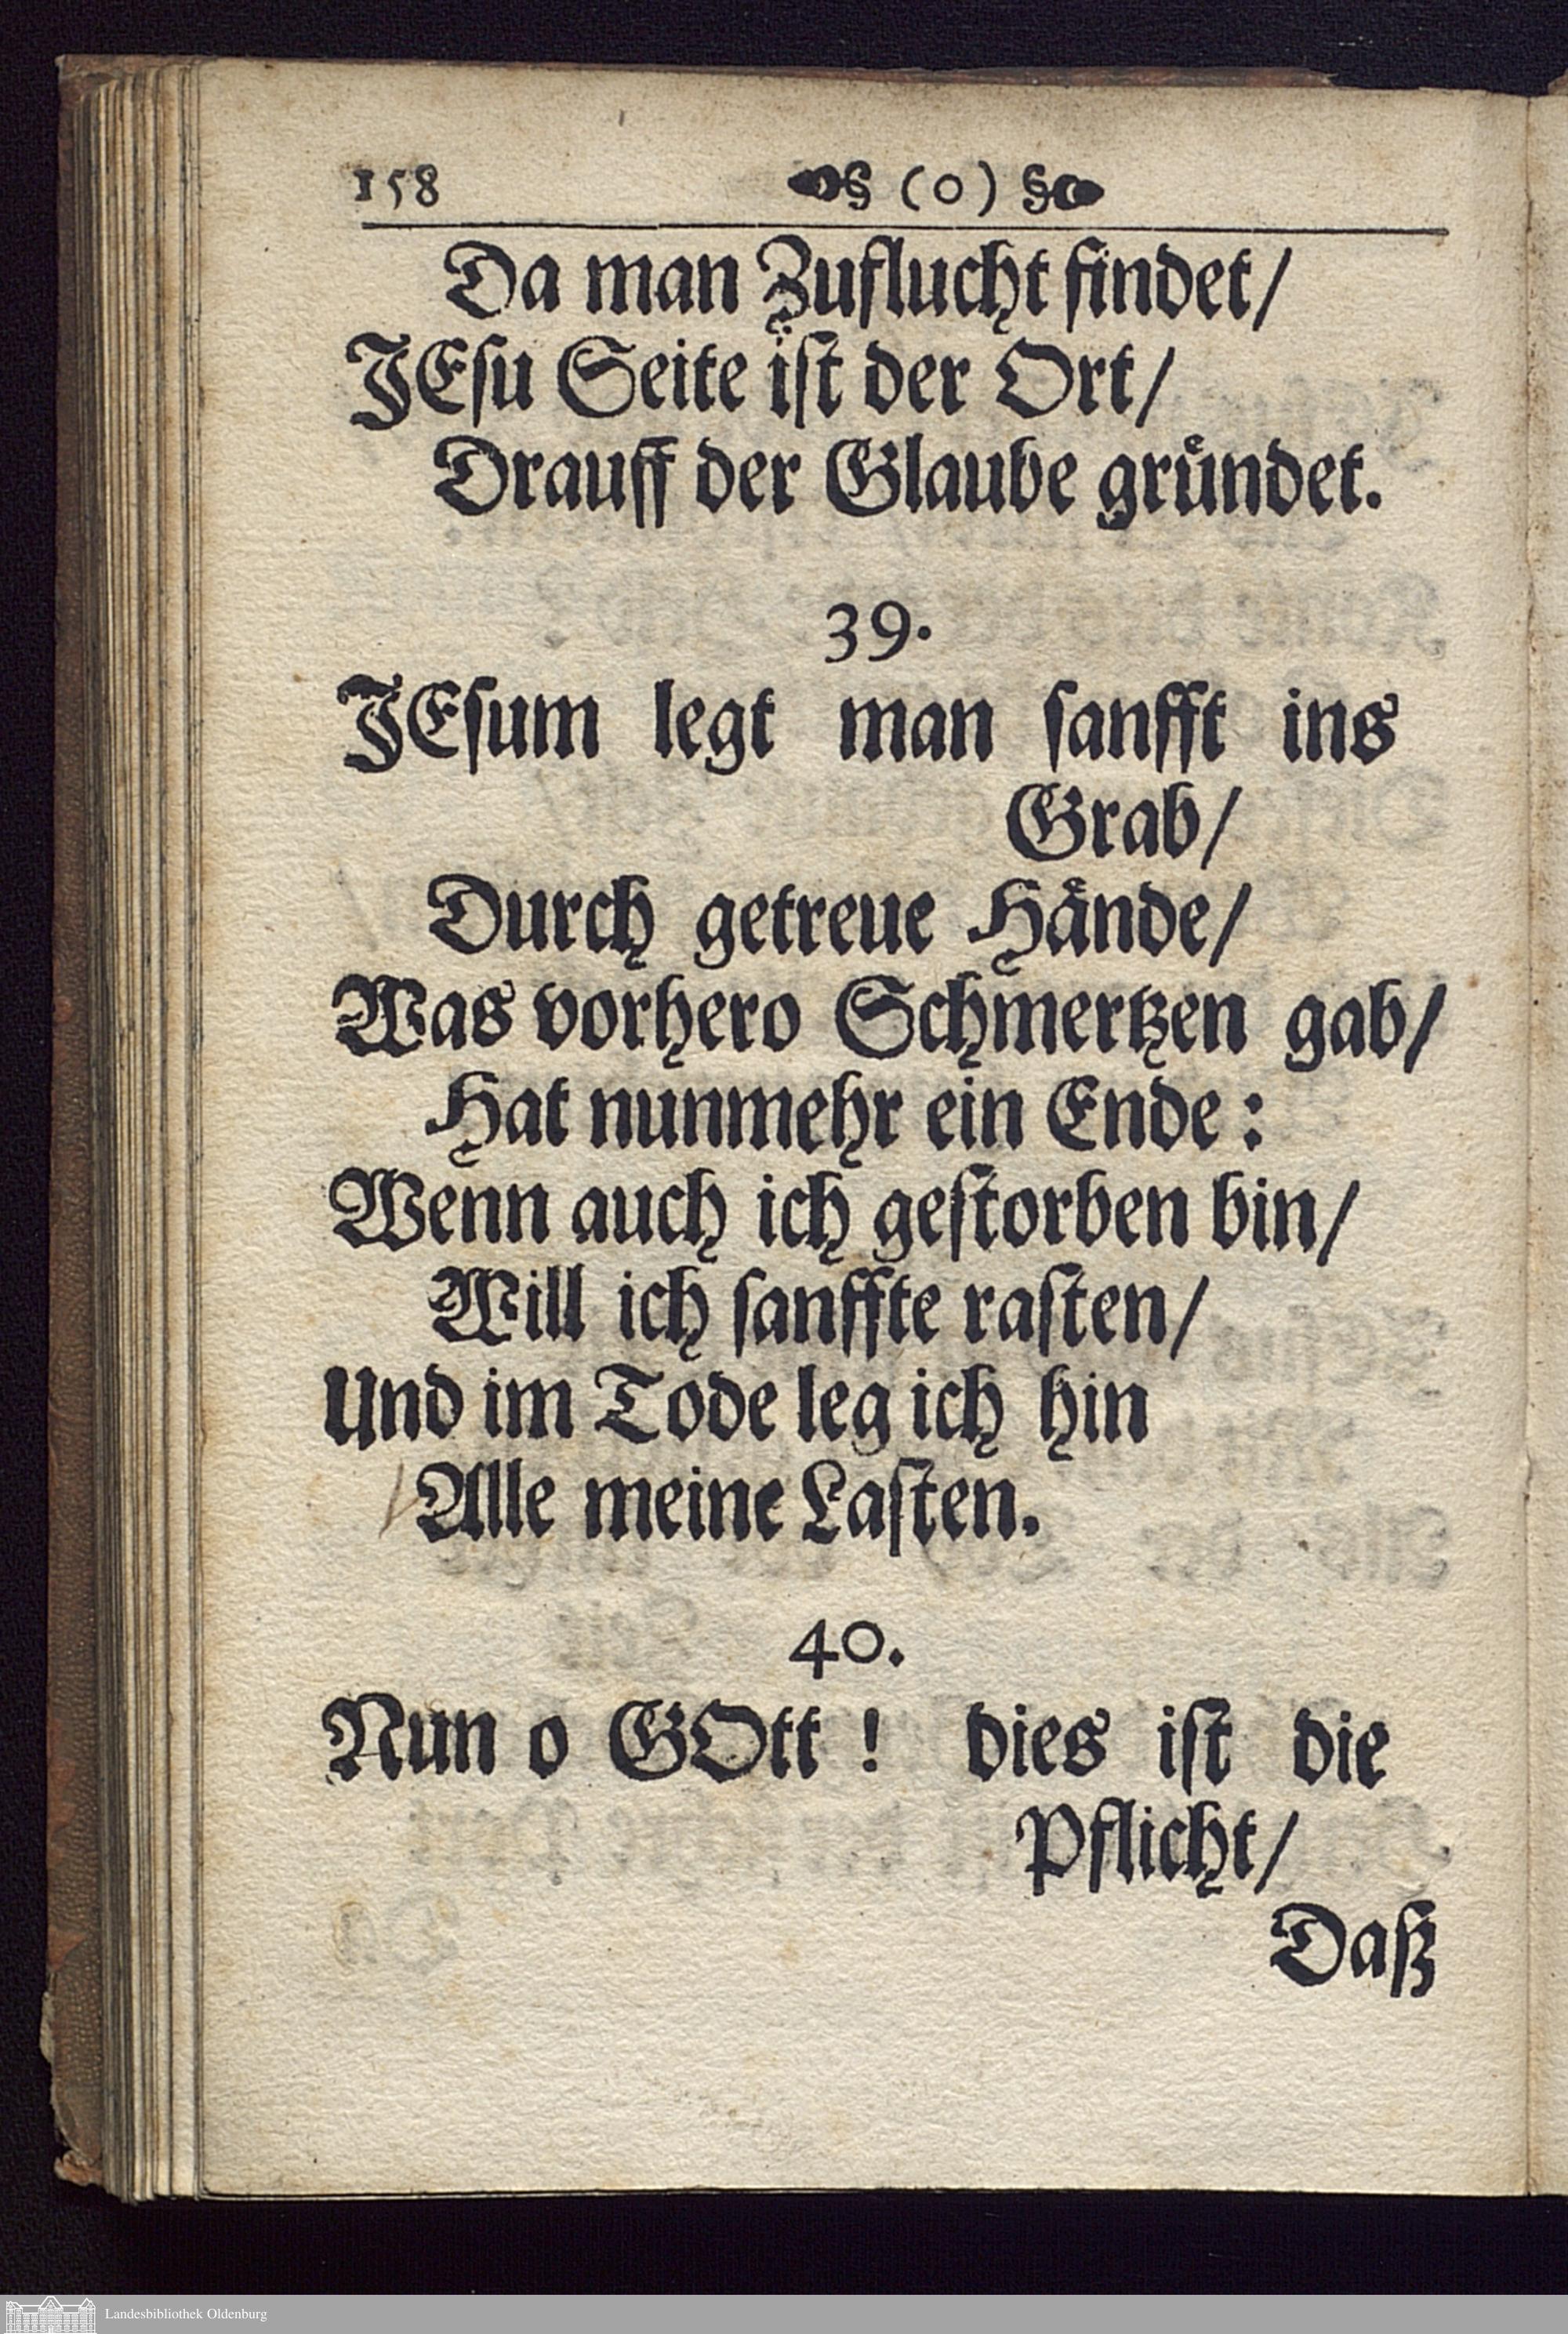 158 §(0)§
Da man Zuflucht findet/
JEsu Seite ist der Ort/
Drauff der Glaube gründet.
39.
JEsum legt man sanfft ins
Grab/
Durch getreue Hände/
Was vorhero Schmertzen gab/
Hat nunmehr ein Ende:
Wenn auch ich gestorben bin/
Will ich sanffte rasten/
Und im Tode leg ich hin
Alle meine Lasten.
40.
Nun o GOtt! dies ist die
Pflicht/
Daß
Landesbibliothek Oldenburg